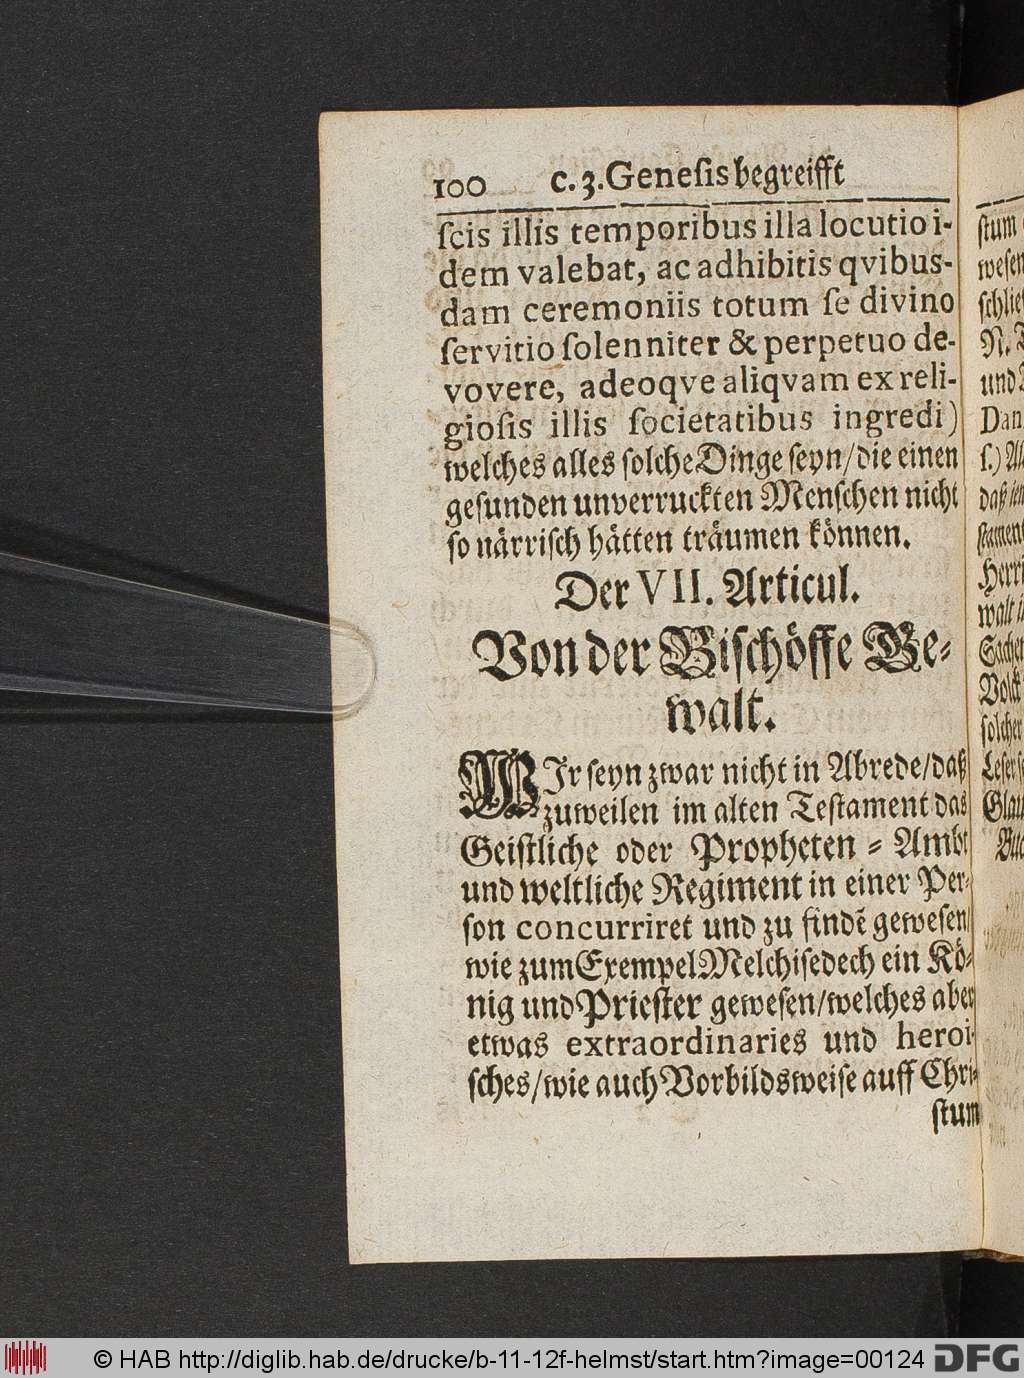 100 c. 3. Genesis begreifft
ſcis illis temporibus illa locutio i-
dem valebat, ac adhibitis qvibus-
dam ceremoniis totum ſe divino
ſervitio ſolenniter & perpetuo de-
vovere, adeoqve aliqvam ex reli-
gioſis illis ſocietatibus ingredi)
welches alles ſolche Dinge ſeyn/die einen
geſunden unverruckten Menſchen nicht
ſo närriſch hätten träumen können.
Der VII. Articul.
Von der Biſchöffe Ge-
walt.
WIr ſeyn zwar nicht in Abrede/daß
zuweilen im alten Teſtament das
Geiſtliche oder Propheten-Ambt
und weltliche Regiment in einer Per-
ſon concurriret und zu findẽ geweſen/
wie zum Exempel Melchiſedech ein Kö-
nig und Prieſter geweſen/welches aber
etwas extraordinaries und heroi-
ſches/wie auch Vorbildsweiſe auff Chri-
ſtum
ſtum
weſen
ſchlie
N.
und
Dan
ſ.) All
daß
Herr
walt
Sachen
Volck
ſolcher
Leſer
Glau
Buc
© HAB http://diglib.hab.de/drucke/b-11-12f-helmst/start.htm?image=00124 DFG